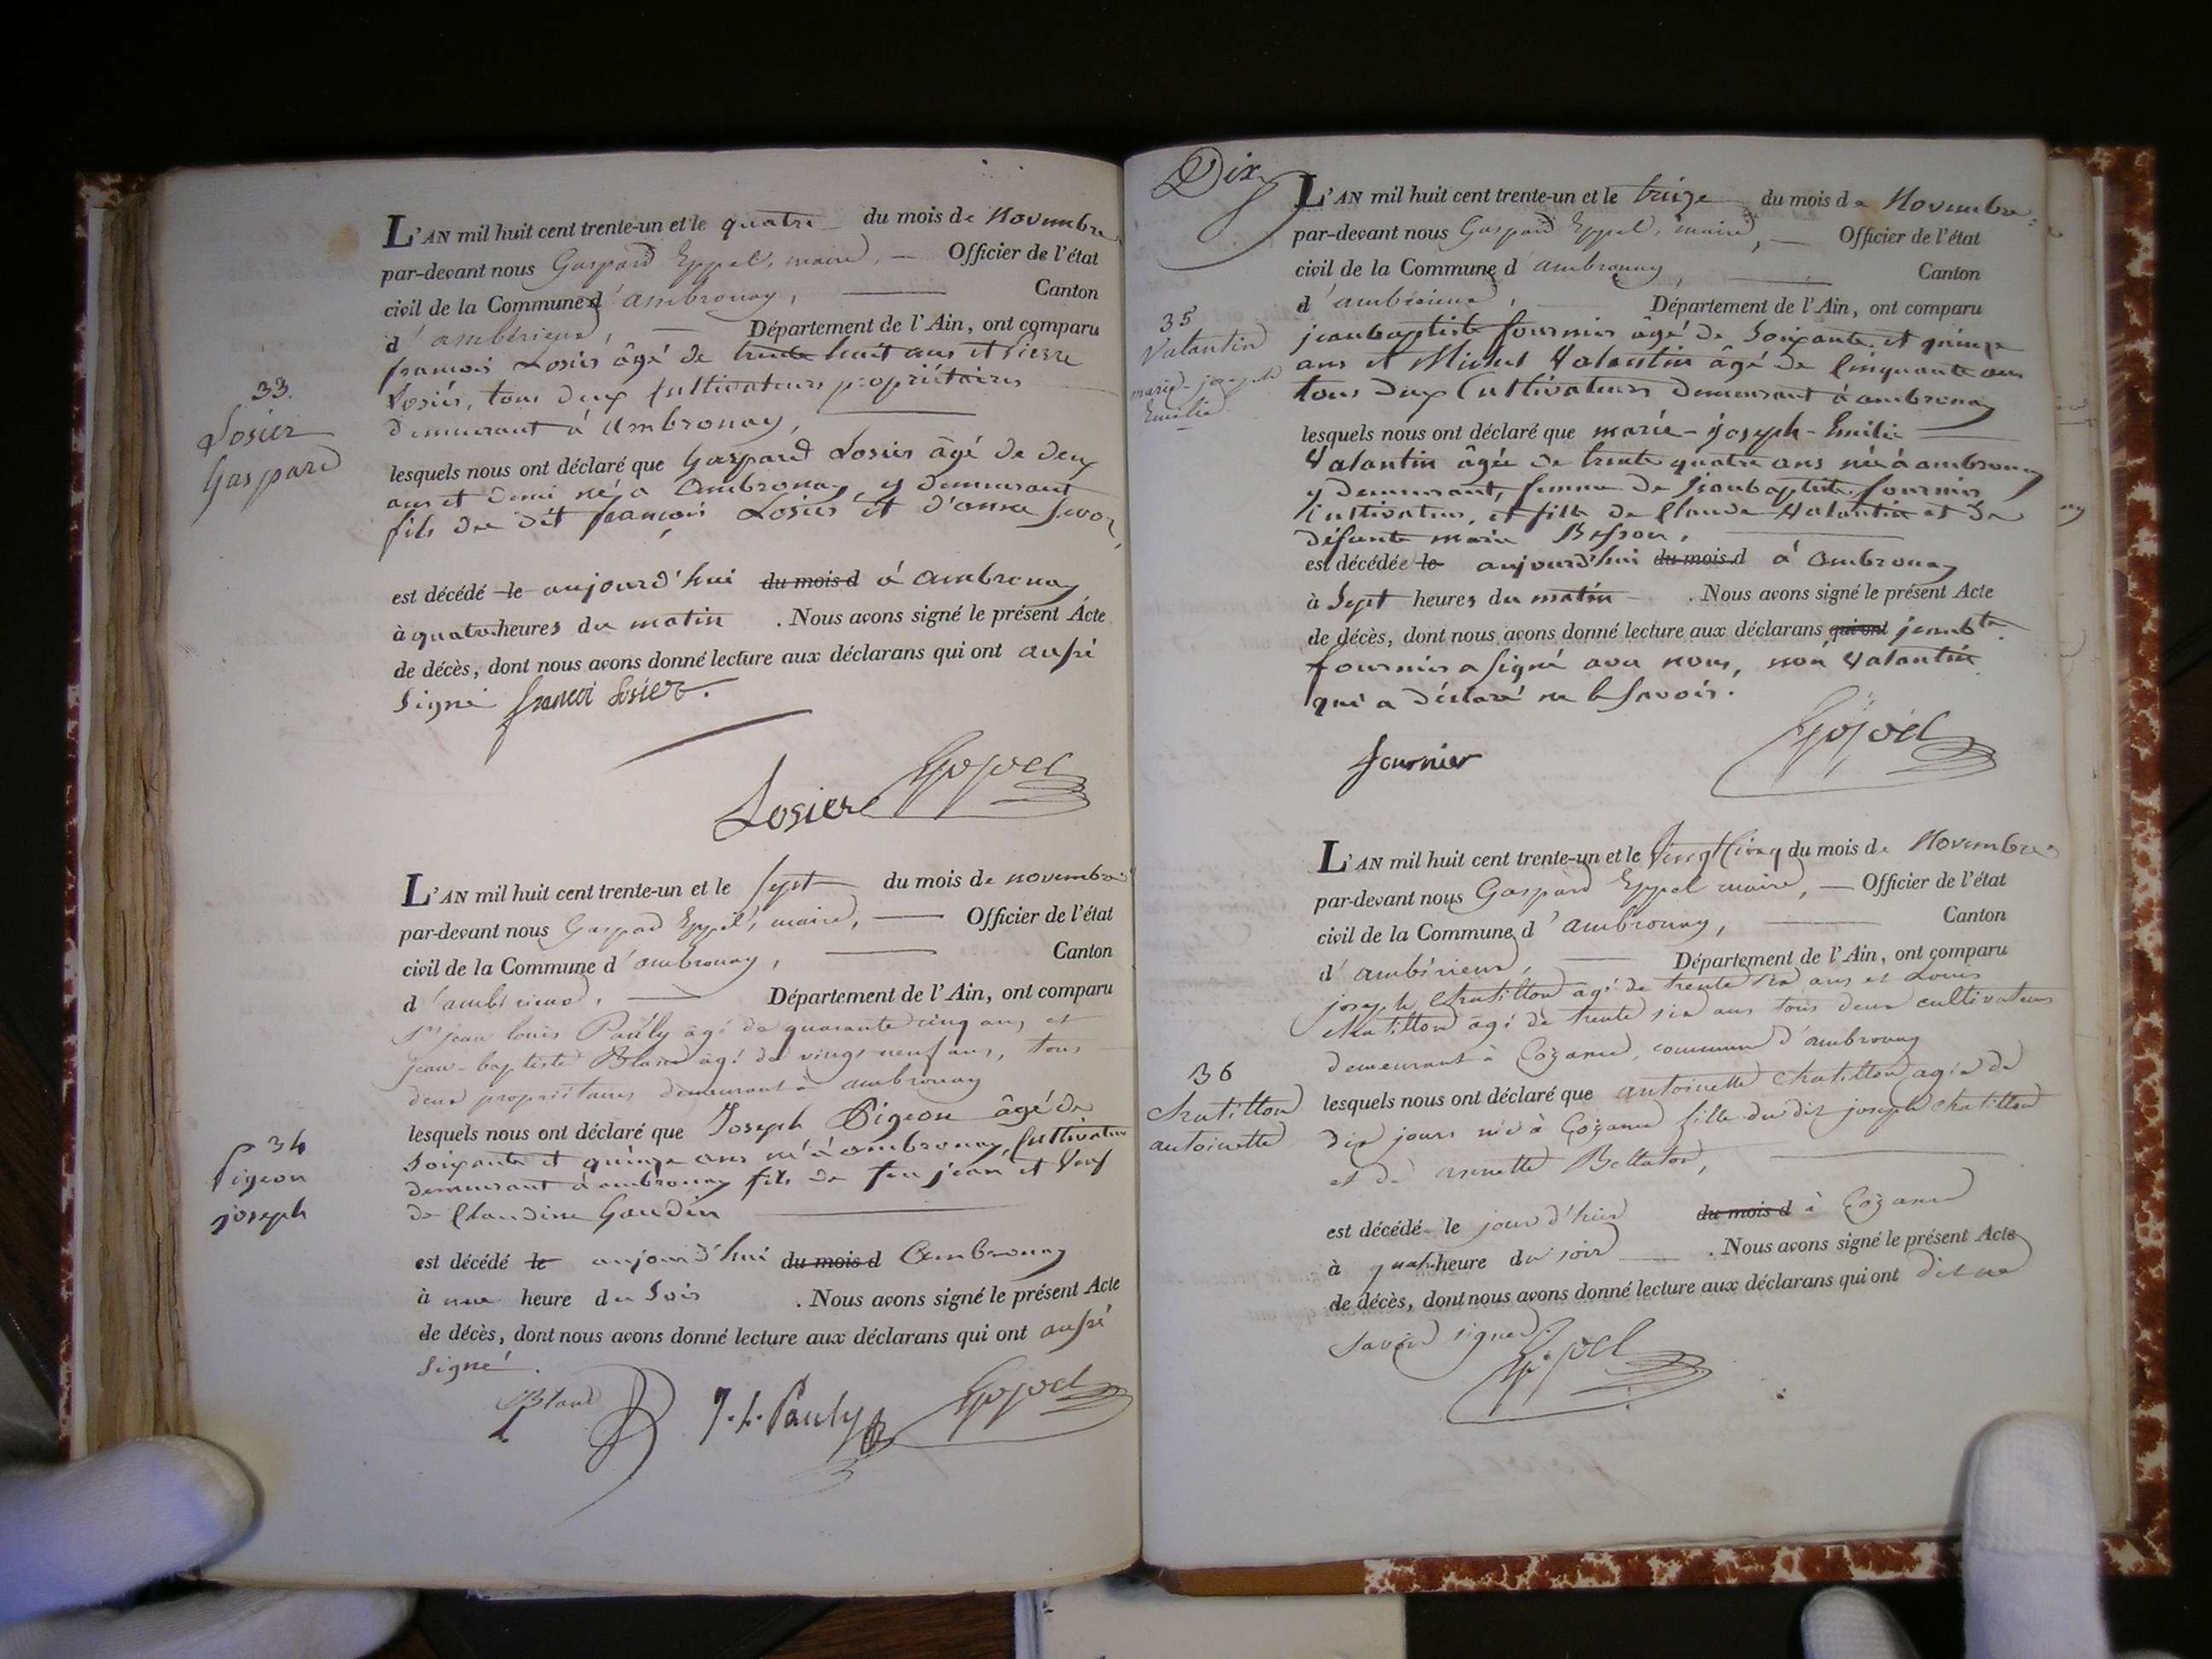 33.
Losier
Gaspard
L'AN mil huit cent trente-un et le quatre du mois de Novembre
par-devant nous Gaspard Eppel, maire, Officier de l'état
civil de la Commune d'ambronay, Canton
d'ambérieux, Département de l'Ain, ont comparu
françois Losier âgé de trente huit ans et Pierre
Losier, tous deux Cultivateurs propriétaires
demeurant à Ambronay,
lesquels nous ont déclaré que Gaspard Losier âgé de deux
ans et demi né à Ambronay y demeurant
fils du dit françois Losier et d'anne
est décédé le aujourd'hui du mois d à Ambronay
à quatre heures du matin . Nous avons signé le présent Acte
de décès, dont nous avons donné lecture aux déclarans qui ont aussi
Signé francoi losier.
Losier
34
Pigeon
joseph
L'AN mil huit cent trente-un et le Sept du mois de novembre
par-devant nous Gaspard Eppel, maire, Officier de l'état
civil de la Commune d'ambronay, Canton
d'ambérieux, Département de l'Ain, ont comparu
Sr jean louis Pauly âgé de quarante cinq ans et
jean-baptiste Bland âgé de vingt neuf ans, tous
deux propriétaires demeurant à ambronay
lesquels nous ont déclaré que Joseph Pigeon âgé de
Soixante et quinze ans né à ambronay, Cultivateur
demeurant à ambronay fils de feu jean et Veuf
de Claudine Gaudin
est décédé le aujourd'hui du mois d Ambronay
à une heure du Soir . Nous avons signé le présent Acte
de décès, dont nous avons donné lecture aux déclarans qui ont aussi
Signé.
Bland J. L. Pauly
Dix
35
Valantin
marie-joseph
Emilie
L'AN mil huit cent trente-un et le treize du mois de Novembre
par-devant nous Gaspard Eppel, maire, Officier de l'état
civil de la Commune d'ambronay, Canton
d'ambérieux, Département de l'Ain, ont comparu
jeanbaptiste fournier âgé de Soixante et quinze
ans et Michel Valantin âgé de Cinquante ans
tous deux Cultivateurs demeurant à ambronay
lesquels nous ont déclaré que marie-joseph-Emilie
Valantin âgée de trente quatre ans née à ambronay
y demeurant, femme de jeanbaptiste fournier
Cultivateur, et fille de Claude Valantin et de
défunte marie Besson,
est décédée le aujourd'hui du mois d à Ambronay
à Sept heures du matin . Nous avons signé le présent Acte
de décès, dont nous avons donné lecture aux déclarans qui ont jeanbte
fournier a Signé avec nous, non Valantin
qui a déclaré ne le Savoir.
fournier
36
Chatillon
antoinette
L'AN mil huit cent trente-un et le Vingt Cinq du mois de Novembre
par-devant nous Gaspard Eppel maire, Officier de l'état
civil de la Commune d'ambronay, Canton
d'ambérieux, Département de l'Ain, ont comparu
joseph Chatillon âgé de trente ans et Louis
chatillon âgé de trente six ans tous deux cultivateurs
demeurant à Cozance, commune d'ambronay
lesquels nous ont déclaré que antoinette Chatillon agée de
dix jours née à Cozance fille du dit joseph chatillon
et de annette Bellaton,
est décédé le jour d'hier du mois d à Cozance
à quatre heure du soir . Nous avons signé le présent Acte
de décès, dont nous avons donné lecture aux déclarans qui ont dit ne
savoir signer.